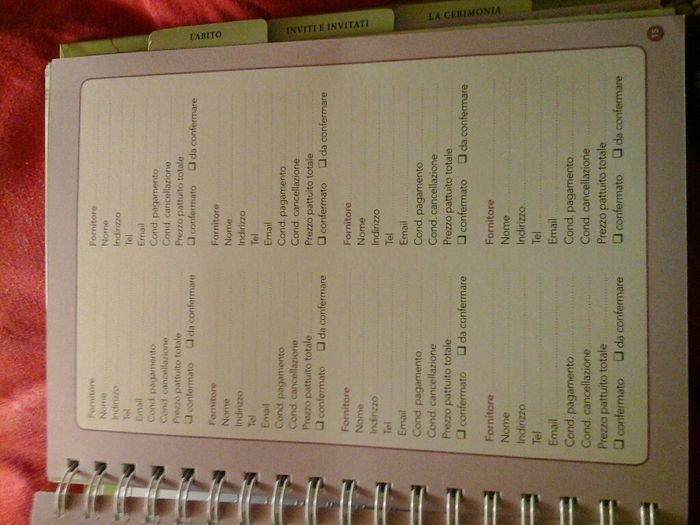 L'ABITO
INVITI E INVITATI
LA CERIMONIA
Fornitore
Nome
Indirizzo
Tel
Email
Cond. pagamento
Cond. cancellazione
Prezzo pattuito totale
❑ confermato ❑ da confermare
Fornitore
Nome
Indirizzo
Tel
Email
Cond. pagamento
Cond. cancellazione
Prezzo pattuito totale
❑ confermato ❑ da confermare
Fornitore
Nome
Indirizzo
Tel
Email
Cond. pagamento
Cond. cancellazione
Prezzo pattuito totale
❑ confermato ❑ da confermare
Fornitore
Nome
Indirizzo
Tel
Email
Cond. pagamento
Cond. cancellazione
Prezzo pattuito totale
❑ confermato ❑ da confermare
Fornitore
Nome
Indirizzo
Tel
Email
Cond. pagamento
Cond. cancellazione
Prezzo pattuito totale
❑ confermato ❑ da confermare
Fornitore
Nome
Indirizzo
Tel
Email
Cond. pagamento
Cond. cancellazione
Prezzo pattuito totale
❑ confermato ❑ da confermare
Fornitore
Nome
Indirizzo
Tel
Email
Cond. pagamento
Cond. cancellazione
Prezzo pattuito totale
❑ confermato ❑ da confermare
Fornitore
Nome
Indirizzo
Tel
Email
Cond. pagamento
Cond. cancellazione
Prezzo pattuito totale
❑ confermato ❑ da confermare
15